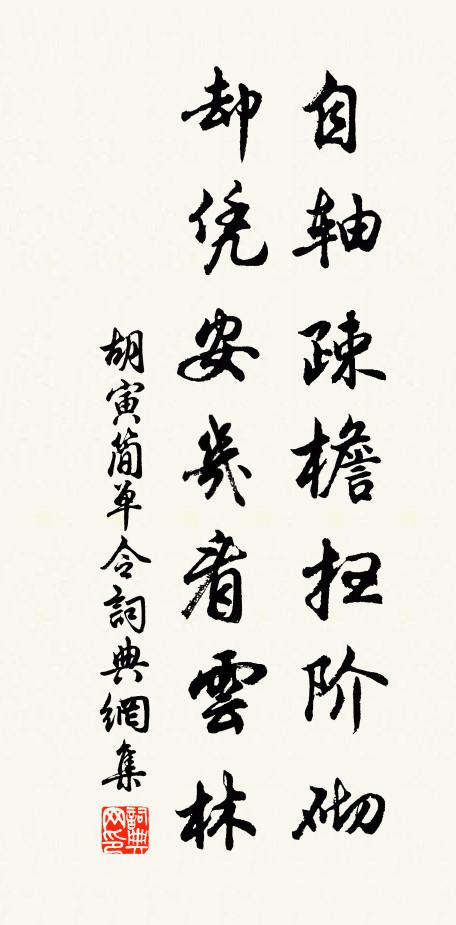 自轴疎檐扫阶砌
却凭安幾看雲林
胡寅简单令詞典網集
詞典网印